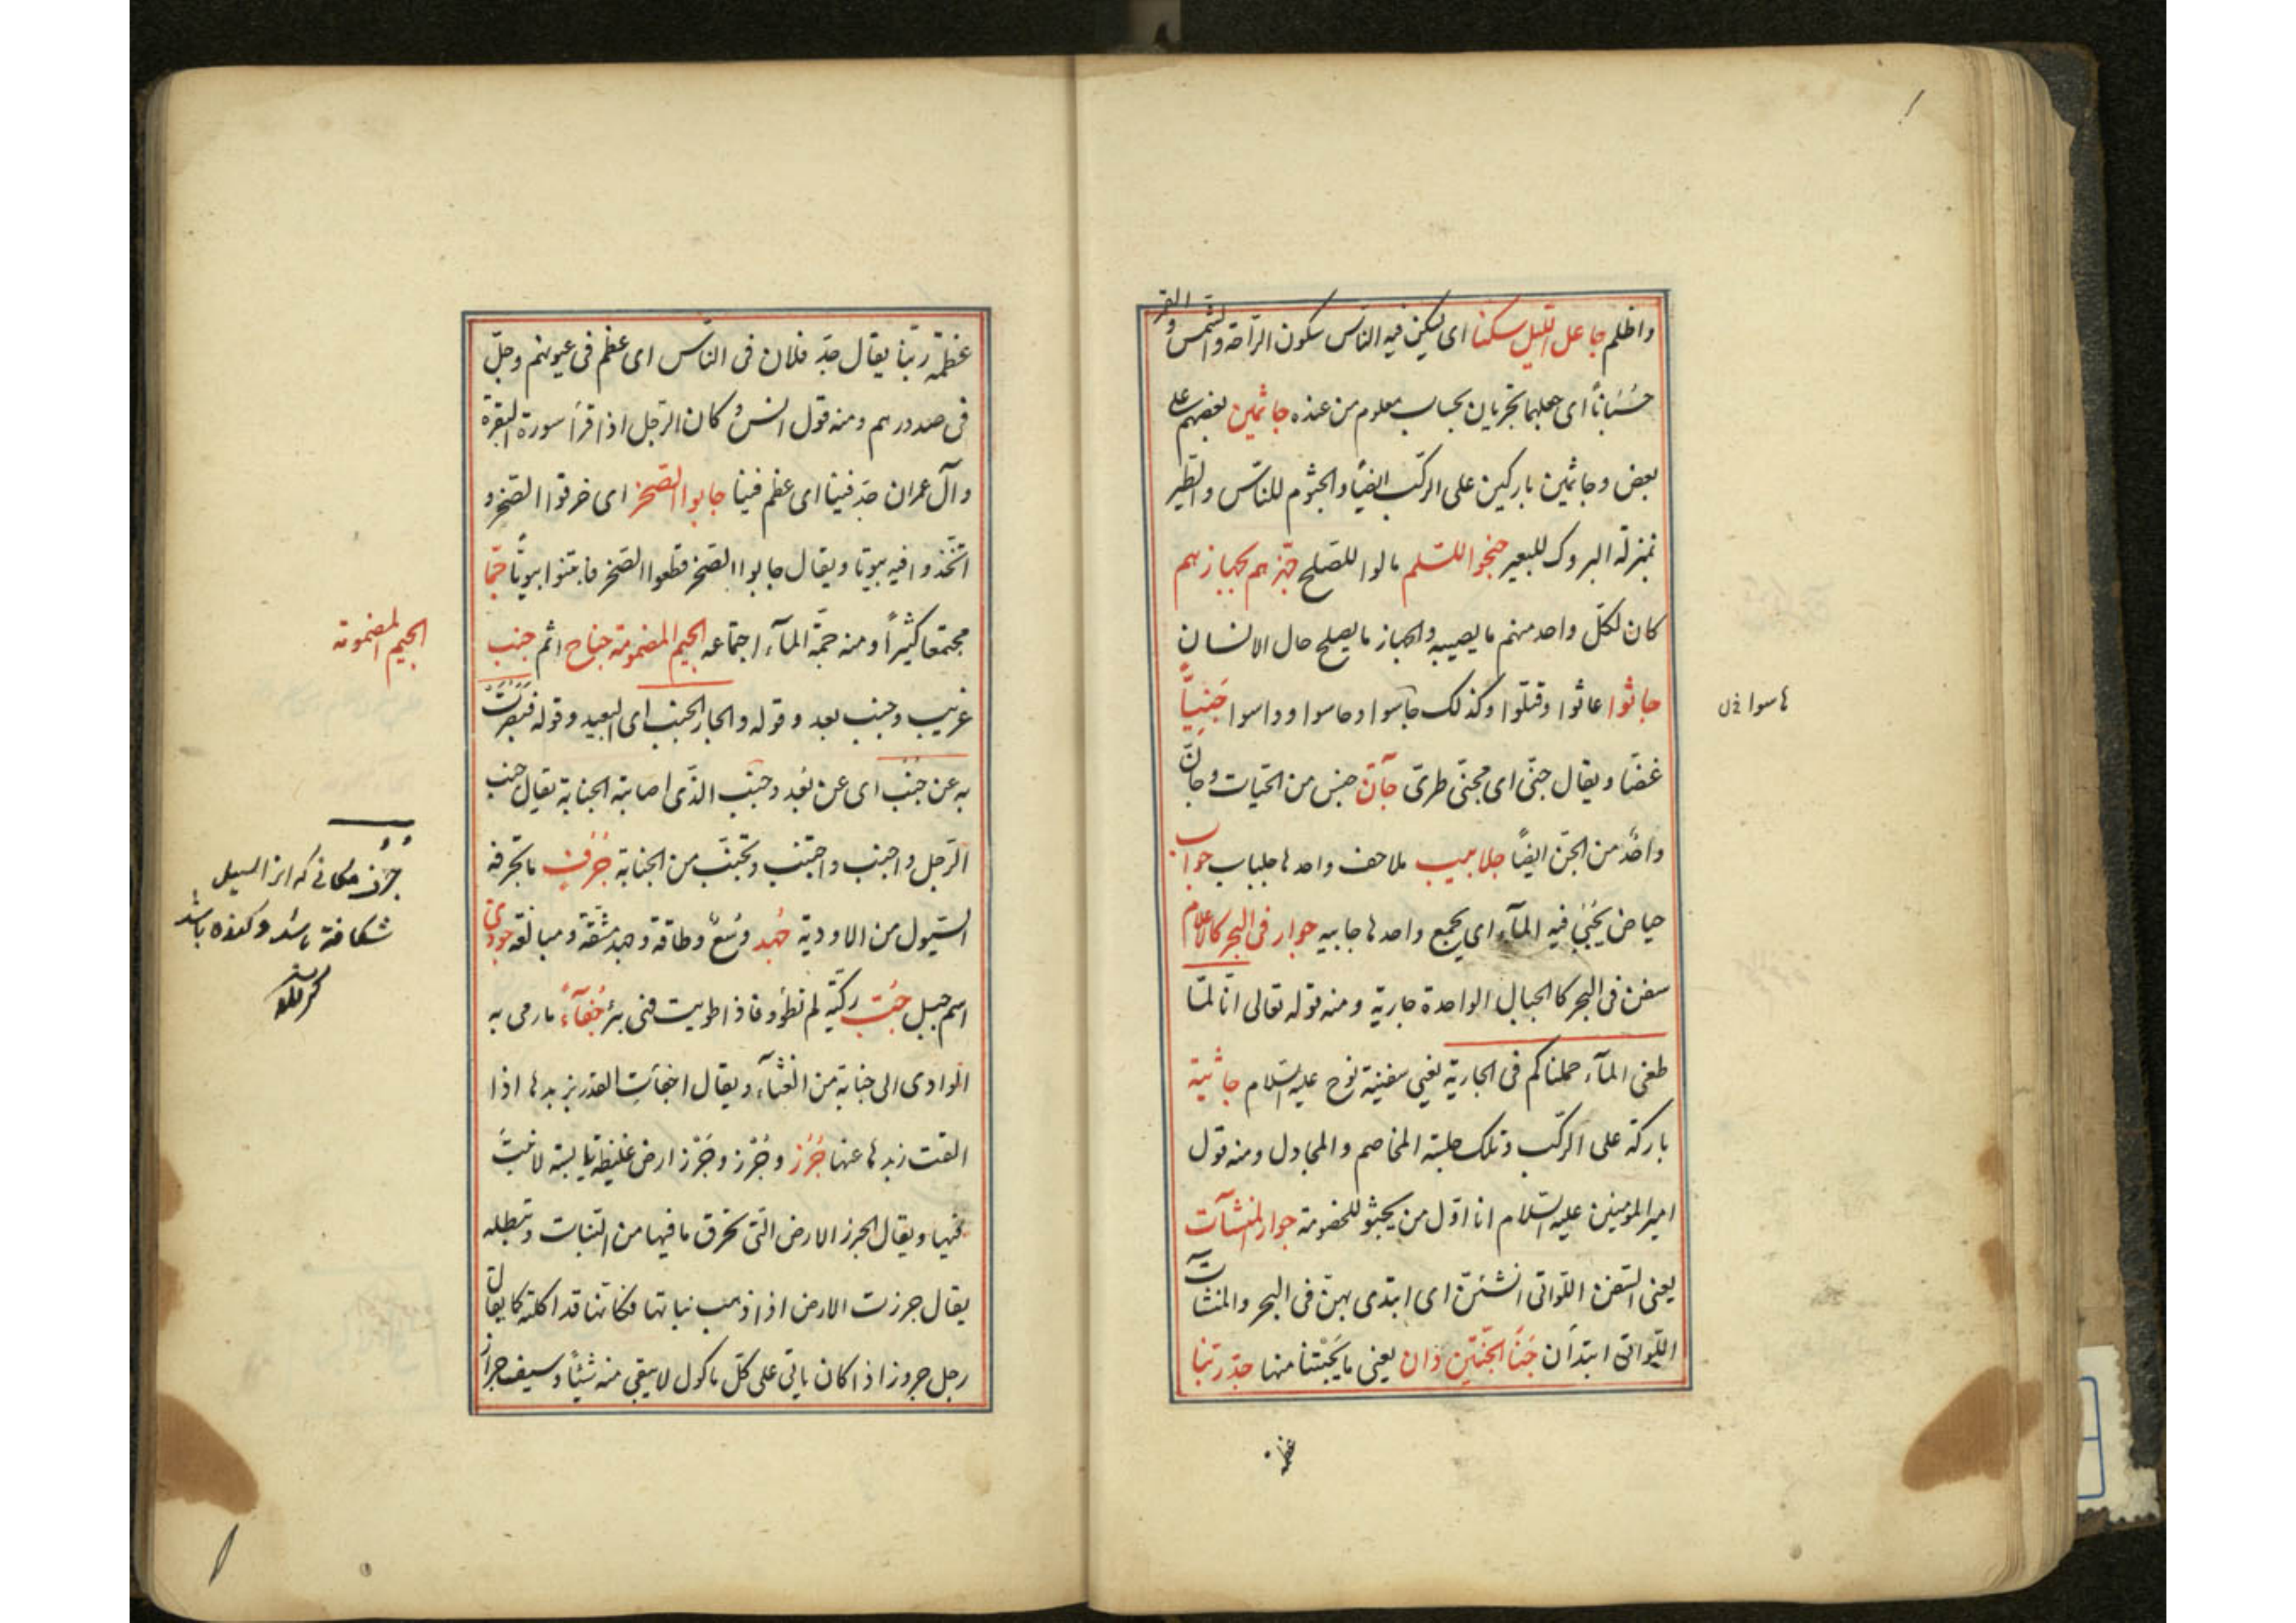 واظلم جاعل الليل سكنا اى يسكن فيه الناس سكون الراحة والشمس والقمر
حُسْبَاناً اى جعلهما تجريان بحساب معلوم من عنده جاثمين بعضهم على
بعض وجاثمين باركين على الركب ايضاً والجثوم للناس والطير
بمنزلة البروك للبعير جنحوا للسلم مالوا للصلح جهزهم بجهازهم
كان لكل واحد منهم ما يصيبه والجهاز ما يصلح حال الانسان
جاثوا عاثوا وقتلوا وكذلك جاسوا وحاسوا وداسوا جَنِيّاً
هاسوا خ ل
غضّا ويقال جنّى اى مجنّى طرىّ جآنّ جنس من الحيات وجانّ
واحد من الجن ايضاً جلابيب ملاحف واحدها جلباب جواب
حياض يُجبى فيه المآء اى يجمع واحدها جابيه جوار فى البحر كالاعلام
سفن فى البحر كالجبال الواحدة جارية ومنه قوله تعالى انّا لمّا
طغى المآء حملناكم فى الجارية يعنى سفينة نوح عليه السلام جاثية
باركة على الركب وتلك جلسة المخاصم والمجادل ومنه قول
امير المومنين عليه السلام انا اوّل من يجثو للخصومة جوار المنشآت
يعنى السفن اللّواتى انشئن اى ابتدى بهنّ فى البحر والمنشآت
اللّواتى ابتدأن جَنَا الجنّتين دَان يعنى ما يجتنا منها جدّ ربّنا
عظمة
عظمة ربّنا يقال جدّ فلان فى النّاس اى عظم فى عيونهم وجلّ
فى صدورهم ومنه قول انس كان الرّجل اذا قرأ سورة البقرة
وآل عمران جدّ فينا اى عظم فينا جابوا الصّخر اى خرقوا الصّخر و
اتّخذوا فيه بيوتا ويقال جابوا الصّخر قطعوا الصّخر فابتنوا بيوتاً جمّا
مجتمعا كثيراً ومنه جمّة المآء اجتماعه الجيم المضمومة جناح اثم جنب
الجيم المضمومة
غريب وجنب بعد وقوله والجار الجنب اى البعيد وقوله فبَصُرَتْ
به عن جُنُب اى عن بُعد وجنب الذّى اصابته الجنابة يقال جنب
الرّجل واجنب واجتنب وتجنّب من الجنابة جُرُفٍ ما تجرفه
السّيول من الاودية جُهد وُسعٌ وطاقة وجهد مشقّة ومبالغة جودى
جرف مكانى كه انرا سيل
شكافته باشد و كنده باشد
اسم جبل جُبّ ركيّة لم تطوَ فاذا طويت فهى بئر جُفآءً ما رمى به
الوادى الى جنابة من الغثآء ويقال اجفأت القدر بزبدها اذا
القت زبدها عنها جُرُز وجُرْز وجَرْز ارض غليظة يابسة لا نبت
فيها ويقال الجرز الارض الّتى تحرق ما فيها من النّبات وتبطله
يقال جرزت الارض اذا ذهب نباتها فكانّها قد اكلته كما يقال
رجل جروز اذا كان ياتى على كلّ ماكول لا يبقى منه شيئاً وسيف جراز